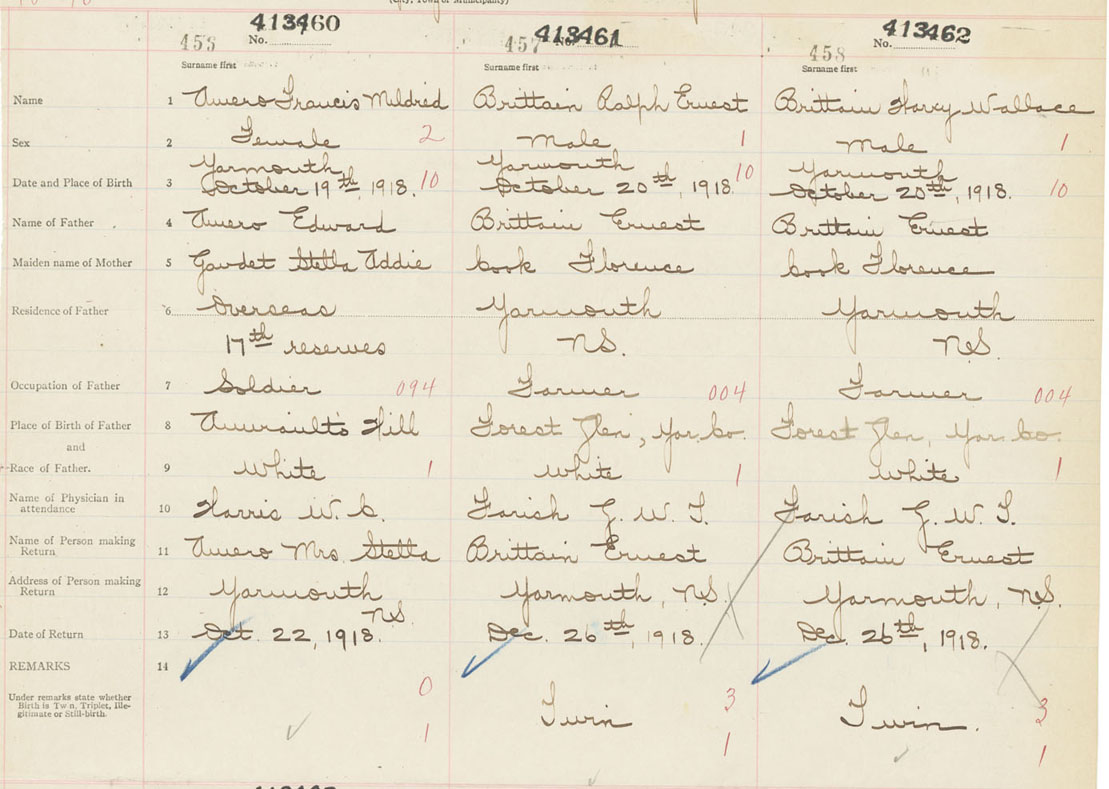 (City, Town or Municipality)
413460 413461 413462
No. No. No.
455 457 458
Surname first Surname first Surname first
Name 1 Amero Francis Mildred Brittain Ralph Ernest Brittain Harry Wallace
Sex 2 Female 2 Male 1 Male 1
Yarmouth Yarmouth Yarmouth
Date and Place of Birth 3 October 19th, 1918. 10 October 20th, 1918. 10 October 20th, 1918. 10
Name of Father 4 Amero Edward Brittain Ernest Brittain Ernest
Maiden name of Mother 5 Gaudet Stella Addie Cook Florence Cook Florence
Residence of Father 6 Overseas Yarmouth Yarmouth
17th reserves N.S. N.S.
Occupation of Father 7 Soldier 094 Farmer 004 Farmer 004
Place of Birth of Father 8 Amirault's Hill Forest Glen, Yar. Co. Forest Glen, Yar. Co.
and
Race of Father. 9 White 1 White 1 White 1
Name of Physician in
attendance 10 Harris W. C. Farish G. W. T. Farish G. W. T.
Name of Person making
Return 11 Amero Mrs. Stella Brittain Ernest Brittain Ernest
Address of Person making
Return 12 Yarmouth Yarmouth, N.S. Yarmouth, N.S.
N.S.
Date of Return 13 Oct. 22, 1918. Dec. 26th, 1918. Dec. 26th, 1918.
REMARKS 14
Under remarks state whether
Birth is Tw n, Triplet, Ille-
gitimate or Still-birth.
0 Twin 3 Twin. 3
1 1 1